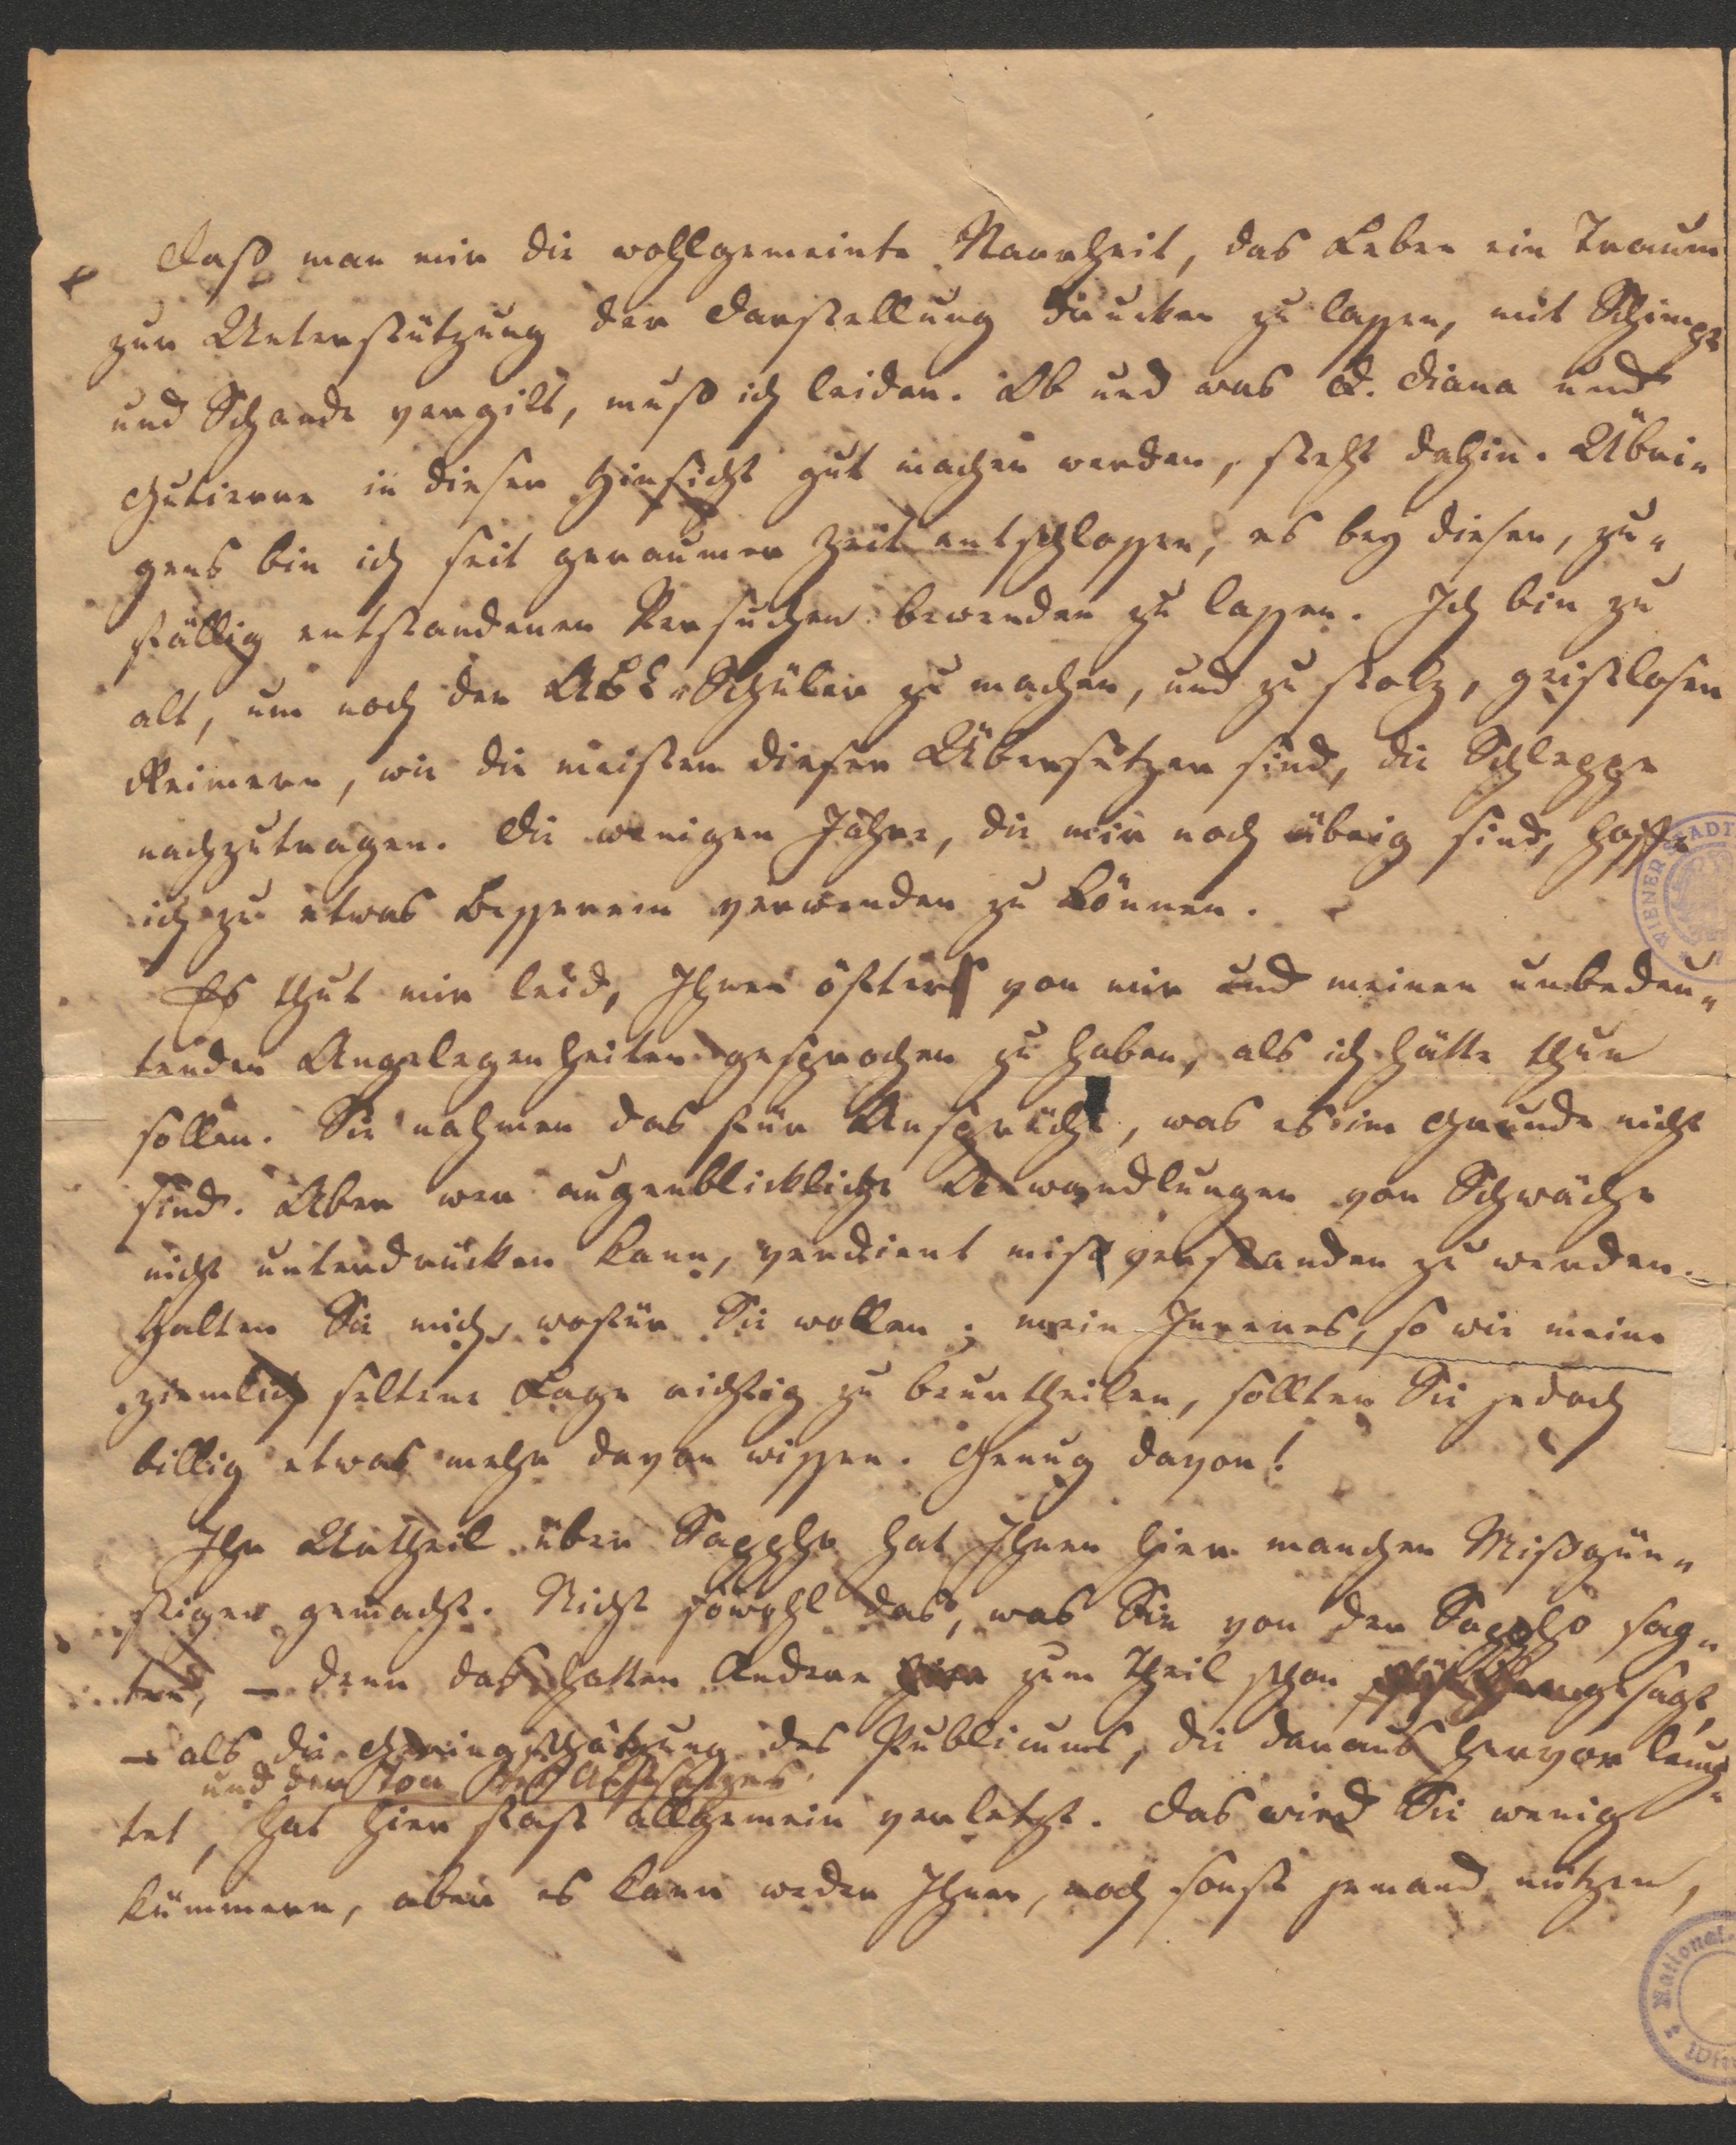 Daß man mir die wohlgemeinte Narrheit, das Leben ein Traum
zur Unterstützung der Darstellung drucken zu lassen, mit Schimpf
und Schande vergilt, muß ich leiden. Ob und was D. Diana und
Gutierre in dieser Hinsicht gut machen werden, steht dahin. Übri-
gens bin ich seit geraumer Zeit entschlossen, es bey diesen, zu-
fällig entstandenen Versuchen bewenden zu lassen. Ich bin zu
alt, um noch den ABC-Schüler zu machen, und zu stolz, geistlosen
Reimern, wie die meisten dieser Übersetzer sind, die Schleppe
nachzutragen. Die wenigen Jahre, die mir noch übrig sind, hoffe
ich zu etwas Besserem verwenden zu können.
Es thut mir leid, Ihnen öfters von mir und meinen unbedeu-
tenden Angelegenheiten gesprochen zu haben, als ich hätte thun
sollen. Sie nahmen das für Ansprüche, was es im Grunde nicht
sind. Aber wer augenblickliche Anwandlungen von Schwäche
nicht unterdrücken kann, verdient mißverstanden zu werden.
Halten Sie mich, wofür Sie wollen; mein Inneres, so wie meine
ziemlich seltene Lage richtig zu beurtheilen, sollten Sie jedoch
billig etwas mehr davon wissen. Genug davon!
Ihr Urtheil über Sappho hat Ihnen hier manchen Mißgün-
stigen gemacht. Nicht sowohl das, was Sie von der Sappho sag-
ten, – denn das hatten Andere hier zum Theil schon gesagt,
– als die Geringschätzung des Publicums, die daraus hervor leuch-
und der Ton des Aufsatzes
tet, hat hier fast allgemein verletzt. Das wird Sie wenig
kümmern, aber es kann weder Ihnen, noch sonst jemand nützen,
WIENER STADT
National
Wien